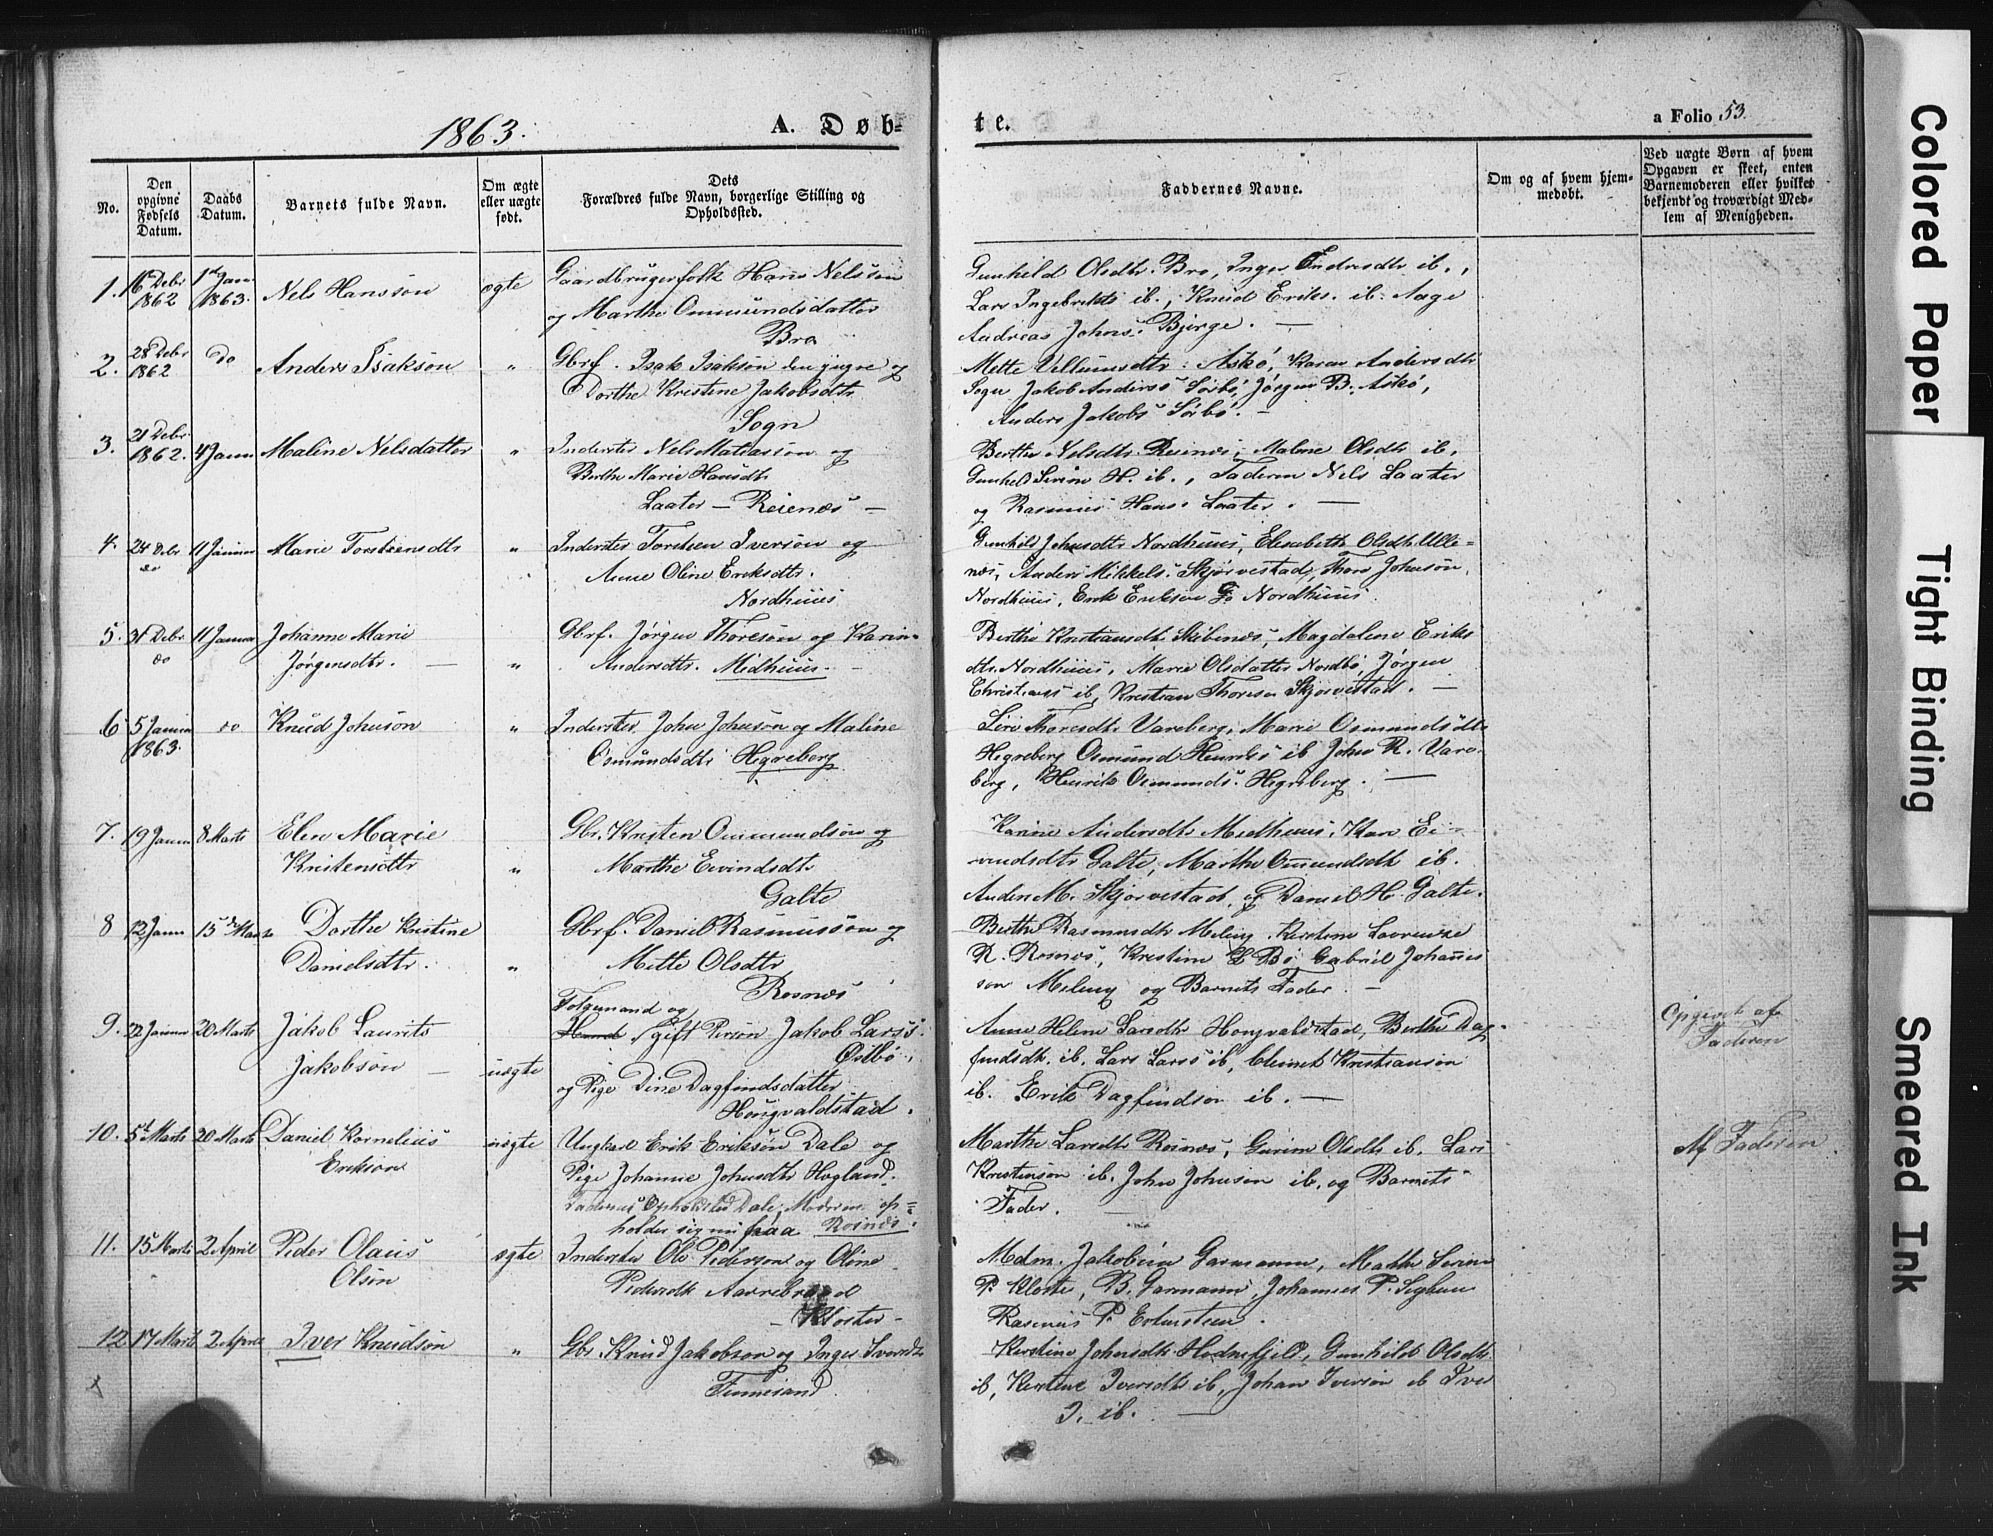 1863. A. Døb=
te. a Folio 53.
No. Den opgivne Fødsels Datum. Daabs Datum. Barnets fulde Navn. Om ægte eller uægte født. Dets Forældres fulde Navn, borgerlige Stilling og Opholdssted.
Faddernes Navne. Om og af hvem hjemmedøbt. Ved uægte Børn af hvem Opgaven er skeet, enten Barnemoderen eller hvilket bekjendt og troværdigt Medlem af Menigheden.
1. 16 Debr 1862 1st Jan 1863. Nels Hansson ægte Gaardbrugerfolk Hans Nelsson
og Marthe Ommundsdatter
Bro
Gunhild Olsdtr. Bro, Inger Endresdtr ib.,
Lars Ingebrikts ib., Knud Eriks. ib. Aage
Andreas Johns. Bjerge. —
2. 28 Debr 1862 Do Anders Isakson " Gbrf. Isak Isakson den yngre og
Dorthe Kristine Jakobsdtr
Sogn
Mette Vellumsdtr. Askø, Karen Andersdtr
Sogn Jakob Anderss Sørbø, Jørgen B. Askø,
Anders Jakobs Sørbø. —
3. 21 Debr. 1862. 4 Janu Maline Nelsdatter " Inderster Nels Matiasson og
Berthe Marie Hansdtr
Laater — Reienæs —
Berthe Nelsdtr Reienæs, Malene Olsdtr ib.
Gunhild Serine H. ib., Faderen Nels Laater
og Rasmus Hans. Laater. —
4. 24 Debr do 11 Januar Marie Torstensdtr " Inderster Torsten Iverson og
Anne Oline Eriksdtr.
Nordhuus
Gunhild Johnsdtr Nordhuus, Elisabeth Olsdtr Ulle=
næs, Anders Mikkels. Skjørvestad, Thore Johnson
Nordhuus, Erik Erikson Nordhuus.
5. 31 Debr. do 11 Januar Johanne Marie
Jørgensdtr. — " Gbrf. Jørgen Thoreson og Karin
Andersdtr. Midhuus. —
Berthe Kristiansdtr Skibenæs, Magdalene Eriks
dtr. Nordhuus, Marie Olsdatter Nordbø, Jørgen
Christianss ib, Kristian Thoreson Skjørvestad. —
6 5 Januar 1863. do Knud Johnson " Inderster John Johnson og Maline
Osmundsdtr Hegreberg
Siri Thoresdtr Vareberg, Marie Osmundsdtr
Hegreberg Osmund Henriks ib John R. Vare
berg, Henrik Osmunds. Hegreberg. —
7. 19 Janu 8 Marts Elen Marie
Kristensdtr " Gbr. Kristen Ommundson og
Marthe Eivindsdtr
Galte
Karine Andersdtr Midhuus, Kari Ei-
vindsdtr Galte, Marthe Ommundsdtr ib.
Anders M. Skjørvestad, og Daniel H. Galte.
8 12 Janu 15de Marts Dorthe Kristine
Danielsdtr. " Gbrf. Daniel Rasmusson og
Mette Olsdtr
Rosnæs
Berthe Rasmusdtr Meling, Kirstine Lovrentze
R. Rosnæs, Kristine Bø Gabriel Johannes
son Meling og Barnets Fader. —
9. 22 Januar 20 Marts Jakob Laurits
Jakobson — uægte Folgemand og
gift Person Jakob Larss
Østbø,
og Pige Dine Dagfindsdatter
Hougvaldstad.
Anne Helene Larsdtr Hougvaldstad, Berthe Dag-
findsdtr. ib. Lars Larss ib, Clemet Kristianson
ib. Erik Dagfindson ib. —
Opgivet af
Faderen
10. 5t Marts 20 Marts Daniel Kornelius
Erikson uægte Ungkarl Erik Erikson Dale og
Pige Johanne Johnsdtr Hogland.
Faderens Opholdsted Dale, Moderen op=
holder sig nu paa Rosnæs.
Marthe Larsdtr Rosnæs, Gurine Olsdtr ib. Lars
Kristenson ib. John Johnson ib. og Barnets
Fader. —
Af Faderen
11. 15 Marts 2 April Peder Olaus
Olson ægte Inderster Ole Pederson og Oline
Pedersdtr Aarrebrod
— Kloster —
Mdm. Jakobine Garmann, Mathe Serine
P. Kloster, B. Garmann, Johannes P.
Rasmus P.
12 17 Marts 2 April Iver Knudson " Gbr. Knud Jakobson og Inger Iversdtr
Finnesand.
Kirstine Johnsdtr. Hodnefjeld, Gunhild Olsdtr
ib, Kirstine Iversdtr ib, Johan Iverson ib Iver
I. ib. —
Colored Paper
Tight Binding
Smeared Ink